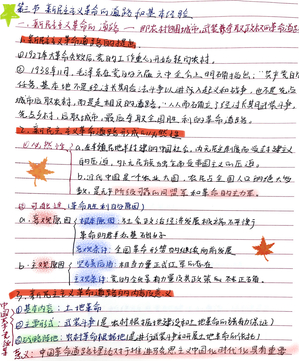 第三节 新民主主义革命的道路和基本经验
一、新民主主义革命的道路 — 即农村包围城市,武装夺取政权的革命道路
1.新民主主义革命道路的提出
①1927年大革命失败后,党的工作重心开始转向农村。
②1938年11月,毛泽东在党的六届六中全会上明确指出:"共产党的
任务,基本地不是经过长期合法斗争以进入起义和战争,也不是先占
城市后取农村,而是走相反的道路。"
先乡村,后取城市,最后夺取全国胜利的革命道路。
2.新民主主义革命道路形成的必然性
①必然性
a.在半殖民地半封建的中国社会,内无民主制度而受封建主义
的压迫,外无民族独立而受帝国主义的压迫。
b.近代中国是一个农业大国,农民占全国人口的绝大多
数,是无产阶级可靠的同盟军和革命的主力军。
②可能性(革命胜利的原因)
a.客观原因
根本原因:社会政治经济发展极端不平衡
革命的群众基础好
客观条件:全国革命形势的继续向前发展
b.主观原因
相当力量正式红军的存在
主观条件:党的领导有力量及其政策的不断正确。
3.新民主主义革命道路的内容及意义
①基本内容:土地革命
②主要形式:武装斗争(是农村根据地建设和土地革命的强有力保证)
③战略阵地:农村革命根据地(是进行武装斗争和开展土地革命的依托)
意义:中国革命道路理论对于推进马克思主义中国化时代化具有重要